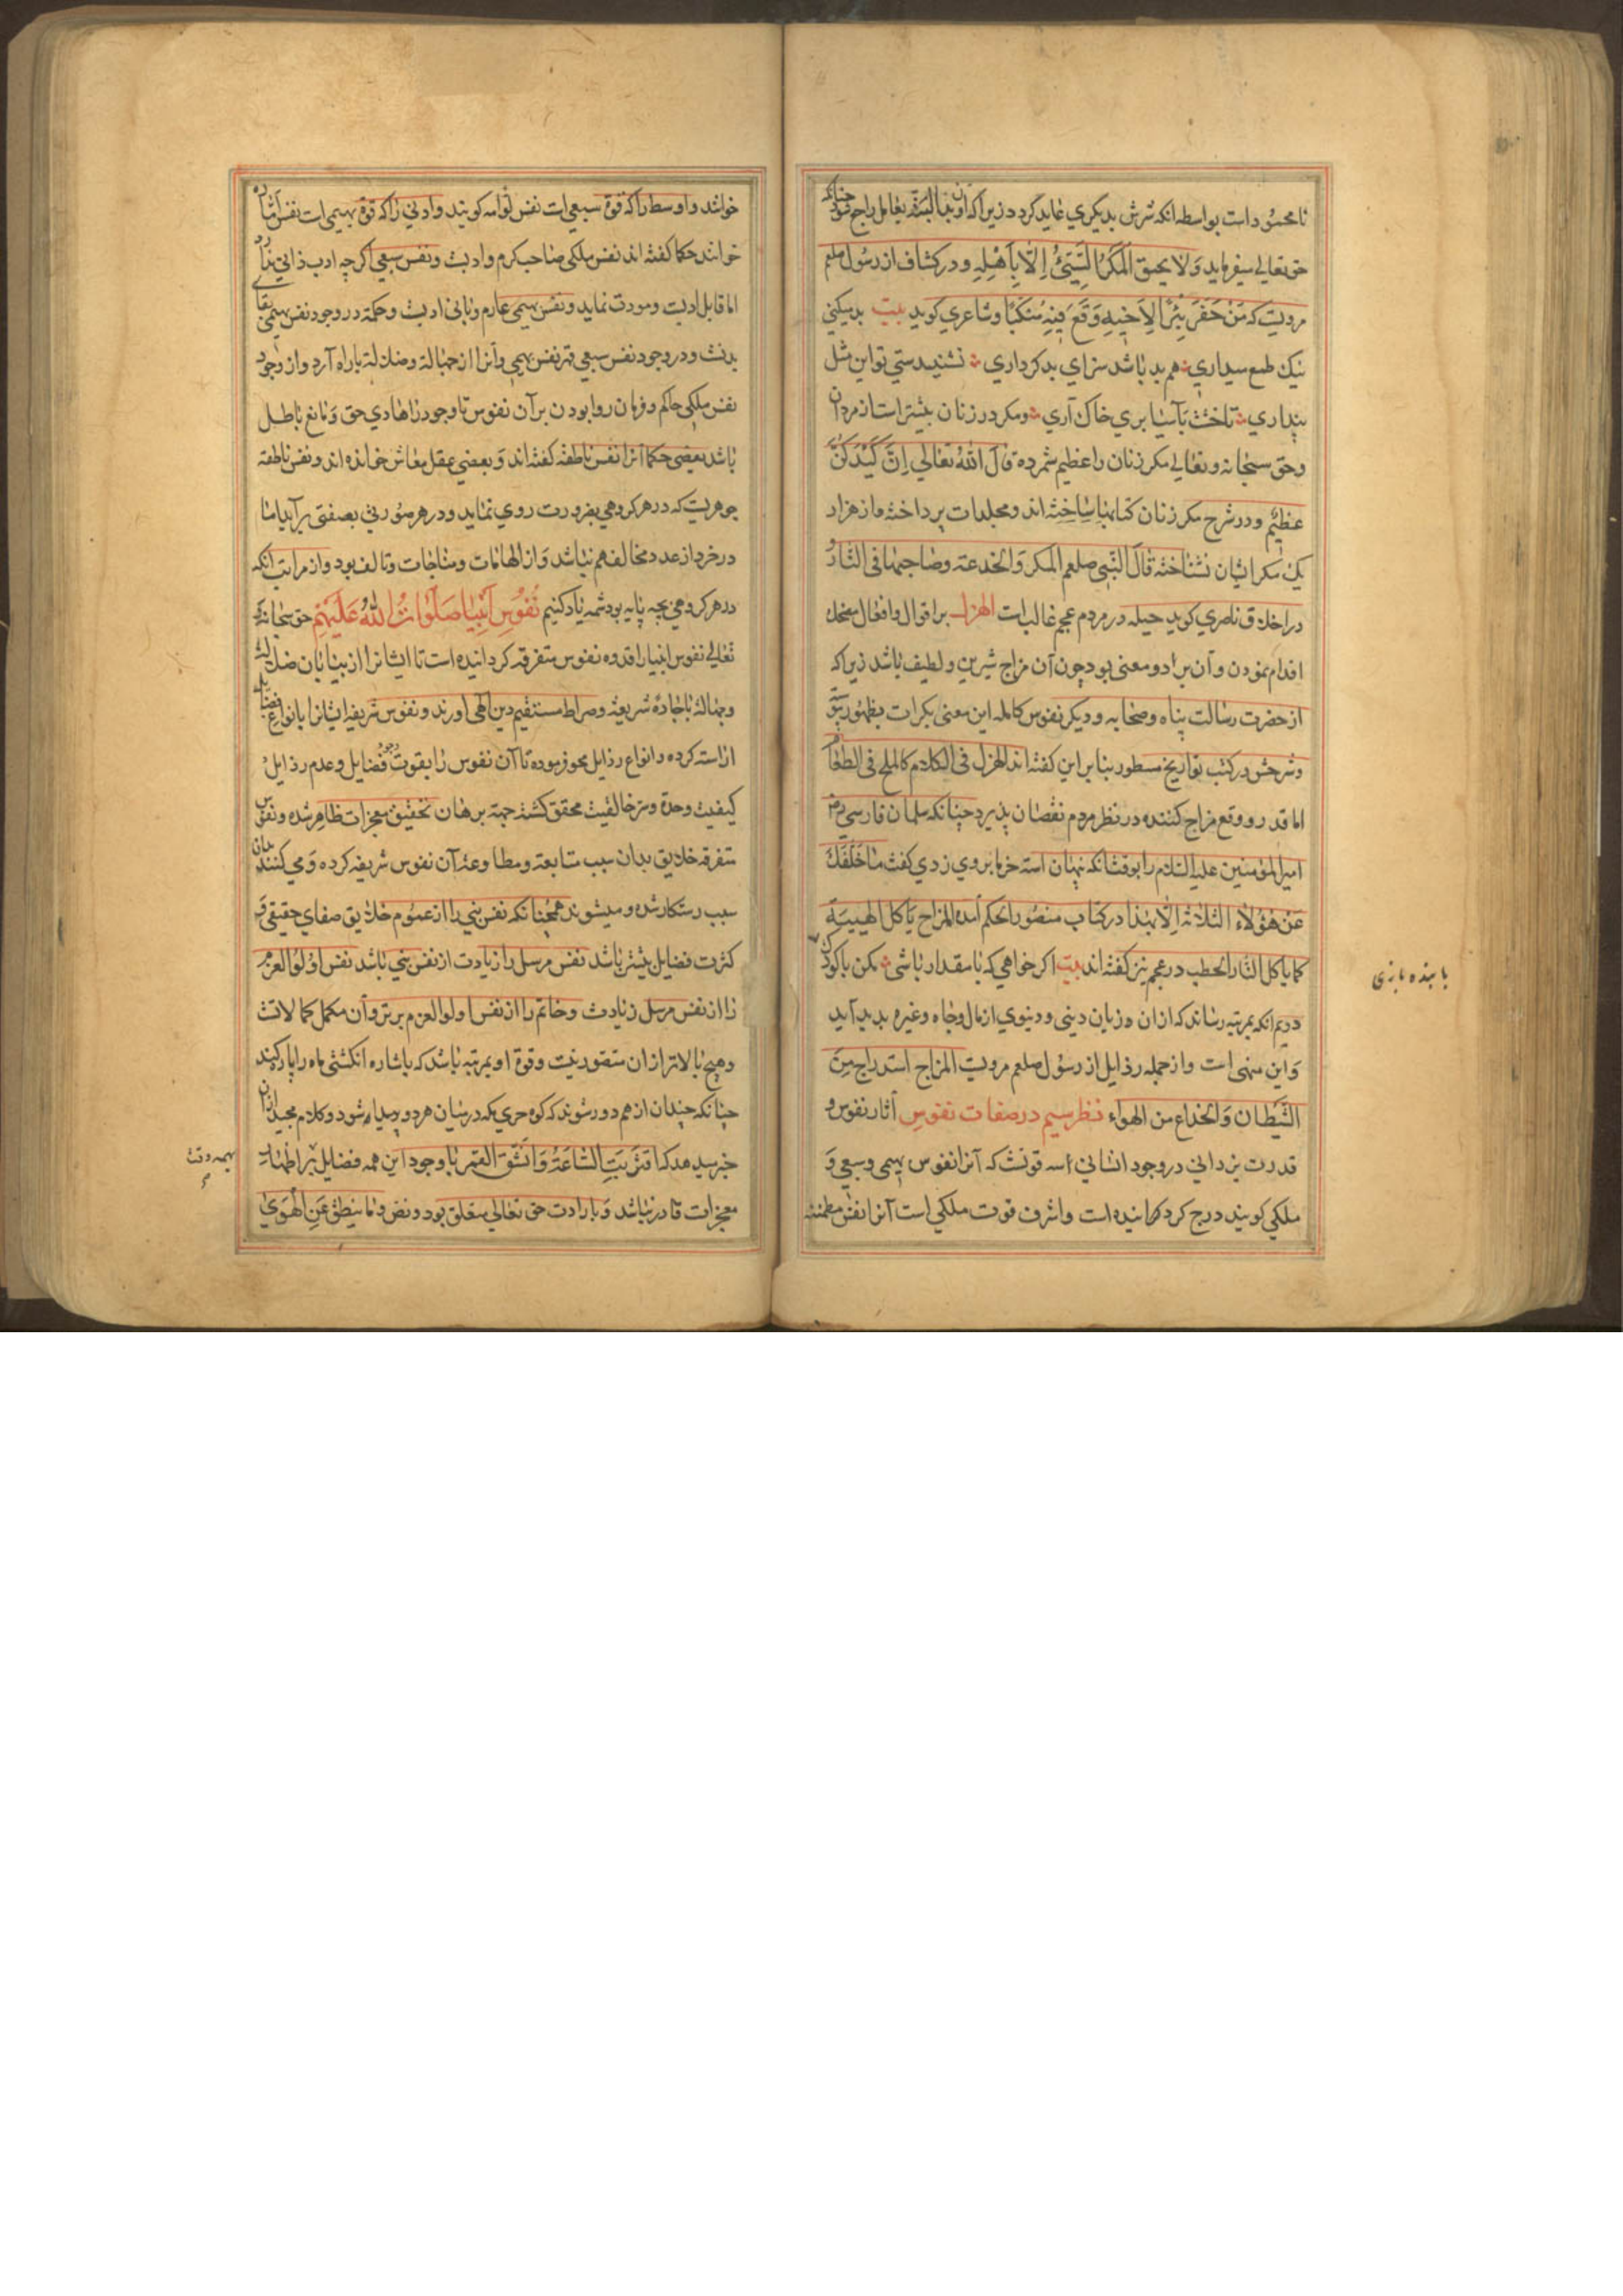 نامحمود است بواسطه انکه شرش بدیکری عاید کردد زیرا که آن البته بفاعل راجع شود چنانکه
حق تعالی میفرماید وَلَا یحیق المَکرُ السَّیِّئُ اِلَّا بِاَهْلِهِ و در کشاف از رسول صلعم
مرویست که مَنْ حَفَرَ بِئْرًا لِاَخِیهِ وَقَعَ فِیهِ مُنکَبًّا و شاعری کوید بیت بد میکنی
نیک طمع میداری هم بد باشد سزای بد کرداری نشنیدستی تو این مثل
پنداری تا خشت بآسیا بری خاک آری و مکر در زنان بیشتر است از مردان
و حق سبحانه و تعالی مکر زنان را عظیم شمرده قالَ اللّٰهُ تعالی اِنَّ کَیْدَکُنَّ
عظیمٌ و در شرح مکر زنان کتابها ساخته اند و مجلدات پرداخته و از هزار
یک مکر ایشان نشناخته قالَ النَّبِی صلعم المکر وَالخدعة وصاحبهما فی النَّار
در اخلاق ناصری کوید حیله در مردم عجم غالبست الهزل بر اقوال و افعال مضحک
اقدام نمودن و آن بر دو معنی بود چون آن مزاح شیرین و لطیف باشد زیرا که
از حضرت رسالت پناه و صحابه و دیکر نفوس کامله این معنی بکرات بظهور پیوسته
و شرحش در کتب تواریخ مسطور بنا بر این کفته اند الهزل فی الکلام کالملح فی الطعام
اما قدر و وقع مزاح کننده در نظر مردم نقصان پذیرد چنانکه سلمان فارسی رض
امیرالمؤمنین علیه السلام را بوقت انکه پنهان استه خرما بر وی زدی کفت مٰا خَلَّفَکَ
عَنْ هٰؤُلاءِ الثلاثة اِلّا هٰذا در کتاب منصور الحکم آمده المزاح یاکل الهیبة
کما یاکل النّار الحطب در عجم نیز کفته اند بیت اکر خواهی که با مقدار باشی مکن با کودکان
بابنده بازی
دویم انکه بمرتبه رساند که از ان و زیان دینی و دنیوی از مال و جاه و غیره پدید آید
وَاین منهی است و از جمله رذایل از رسول صلعم مرویست المزاح استدراج مِنَ
الشَّیطان وَالخداع من الهواء نظر سیم در صفات نفوس آثار نفوس و
قدرت یزدانی در وجود انسانی سه قوتست که آنرا نفوس بهیمی و سبعی وَ
ملکی کویند درج کرد کردانیده است و اشرف قوت ملکی است آنرا نفس مطمئنه
خوانند و اوسط را که قوة سبعی است نفس لوامه کویند و ادنی را که قوة بهیمی است نفس امّاره
خوانند حکما کفته اند نفس ملکی صاحب کرم و ادبست و نفس سبعی اکر چه ادب ذاتی ندارد
اما قابل ادبست و مودت نماید و نفس بهیمی عارم و نابی ادبست و حکمة در وجود نفس بهیمی بقای
بدنست و در وجود نفس سبعی قهر نفس بهیمی و آنرا از جهالة و ضلالة باراه آرد و از وجود
نفس ملکی حاکم و فرمان روا بودن بر آن نفوس تا وجود را هادی حق وَ مانع باطل
باشد بعضی حکما آنرا نفس ناطقه کفته اند وَ بعضی عقل معاش خوانده اند و نفس ناطقه
جوهریست که در هر کروهی بضرورت روی نماید و در هر صورتی بصفتی برآید اما
در خرد از عدد مخالف هم نباشد وَ از الهامات و مناجات و تالف بود و از مراتب آنکه
در هر کروهی بچه پایه بود شمه یاد کنیم نُفُوسِ اَنْبِیا صَلَوٰاتُ اللّٰهِ عَلَیْهِمْ حق سبحانه
تعالی نفوس انبیا را قدوه نفوس متفرقه کردانیده است تا ایشانرا از بیابان ضلالت
و جهالة باجادهٔ شریعة و صراط مستقیم دین الهی آورند و نفوس شریفه ایشانرا بانواع فضایل
اراسته کرده و انواع رذایل محو فرموده تا آن نفوس را بقوت وجود فضایل و عدم رذایل
کیفیت وحدة و سر خالقیت محقق کشته جهة برهان تحقیق معجزات ظاهر شده و نفوس
متفرقه خلایق بدان سبب متابعة و مطاوعة آن نفوس شریفه کرده وَ می کنند بدان
سبب رستکار شده و میشوند همچنانکه نفس نبی را از عموم خلایق صفای حقیقی وَ
کثرت فضایل بیشتر باشد نفس مرسل را زیادت از نفس نبی باشد نفس اولوالعزم
را از نفس مرسل زیادت و خاتم را از نفس اولوالعزم برتر و آن مکمل کمالاتست
و هیچ بالاتر از ان متصور نیست و قوة او بمرتبه باشد که باشاره انکشتی ماه را پاره کند
چنانکه چندان از هم دور شوند که کوه حری که در میان هر دو پیدا شود و کلام مجید از ان
خبر میدهد که اقْتَرَبَتِ السَّاعَةُ وَانْشَقَّ القَمَر با وجود این همه فضایل بر اظهار
بهمه وقت
معجزات قادر نباشد وَ بارادت حق تعالی متعلق بود و نص وَ مٰا یَنطِقُ عَنِ الْهَوٰی